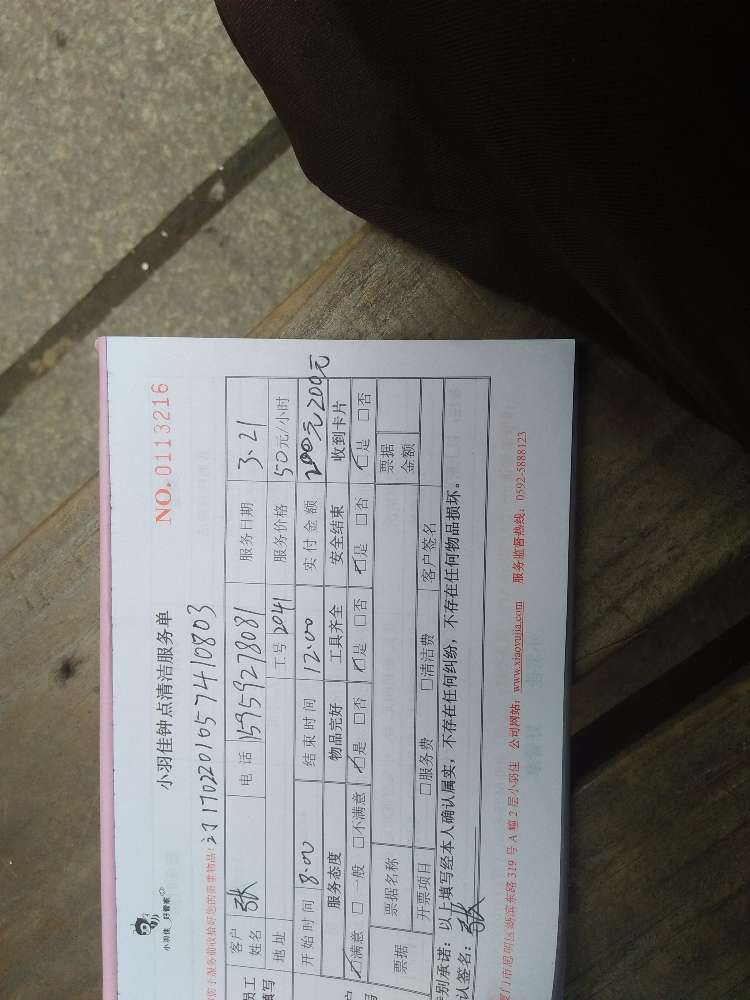 小羽佳 好管家
小羽佳钟点清洁服务单
NO.0113216
服务前收拾好您的贵重物品!
2J1702201057410803
员工
填写
客户
姓名
张
电话
15959278081
服务日期
3.21
地址
工号
2041
服务价格
50元/小时
开始时间
8:00
结束时间
12:00
实付金额
200元200元
服务态度
物品完好
工具齐全
安全结束
收到卡片
☑满意 □ 一般 □不满意
☑是 □否
☑是 □否
☑是 □否
☑是 □否
票据
票据名称
票据
金额
开票项目
□服务费 □清洁费
客户签名
别承诺: 以上填写经本人确认属实, 不存在任何纠纷, 不存在任何物品损坏。
认签名: 张
门市思明区 东路 319 号 A 幢 2 层小羽佳 公司网站: www.xiaoyujia.com 服务监督热线: 0592-5888123